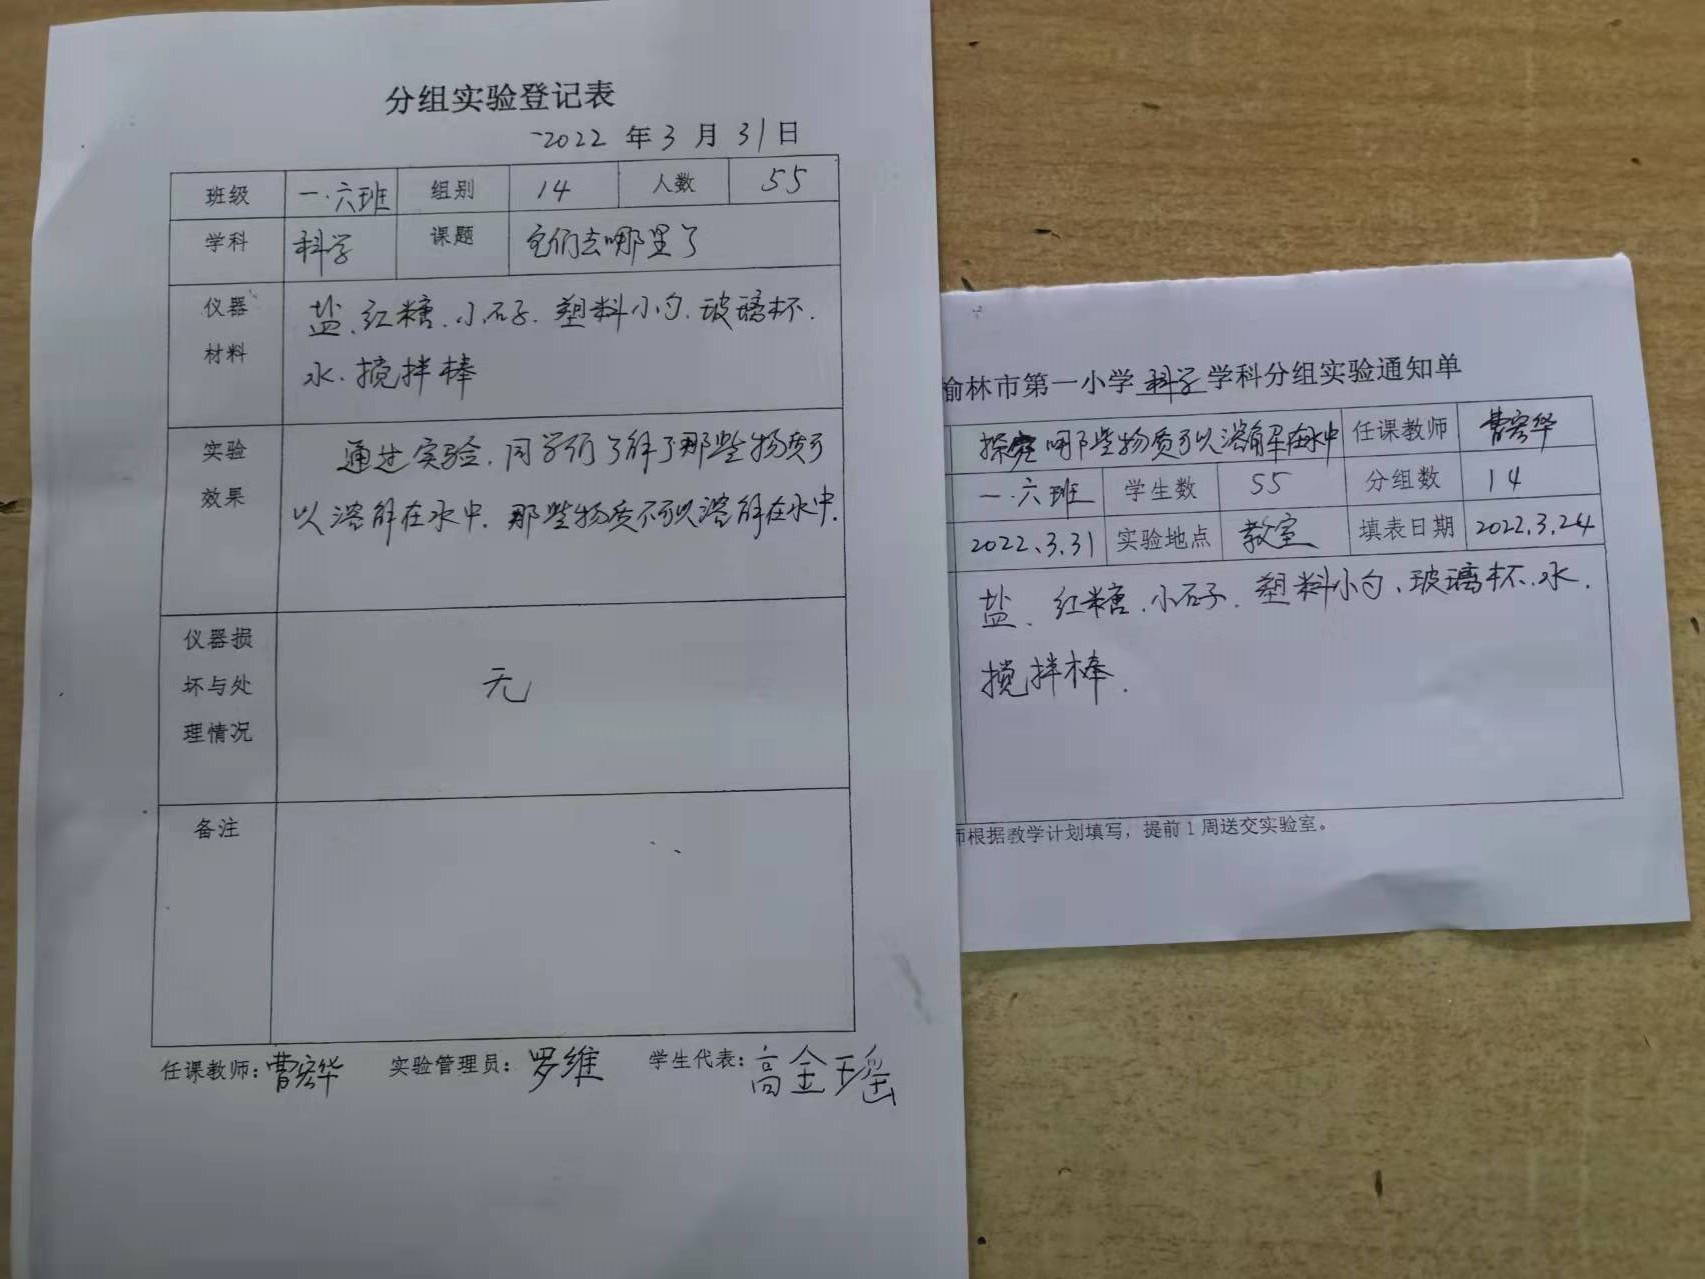 分组实验登记表
2022 年 3 月 31 日
班级 一.六班 组别 14 人数 55
学科 科学 课题 它们去哪里了
仪器 盐、红糖、小石子、塑料小勺、玻璃杯、
材料 水、搅拌棒
实验 通过实验,同学们了解了那些物质可
效果 以溶解在水中,那些物质不可以溶解在水中.
仪器损
坏与处 无
理情况
备注
任课教师:曹宏华 实验管理员:罗维 学生代表:高金瑶
榆林市第一小学 科学 学科分组实验通知单
探究哪些物质可以溶解在水中 任课教师 曹宏华
一.六班 学生数 55 分组数 14
2022.3.31 实验地点 教室 填表日期 2022.3.24
盐、红糖、小石子、塑料小勺、玻璃杯、水、
搅拌棒.
师根据教学计划填写,提前1周送交实验室。